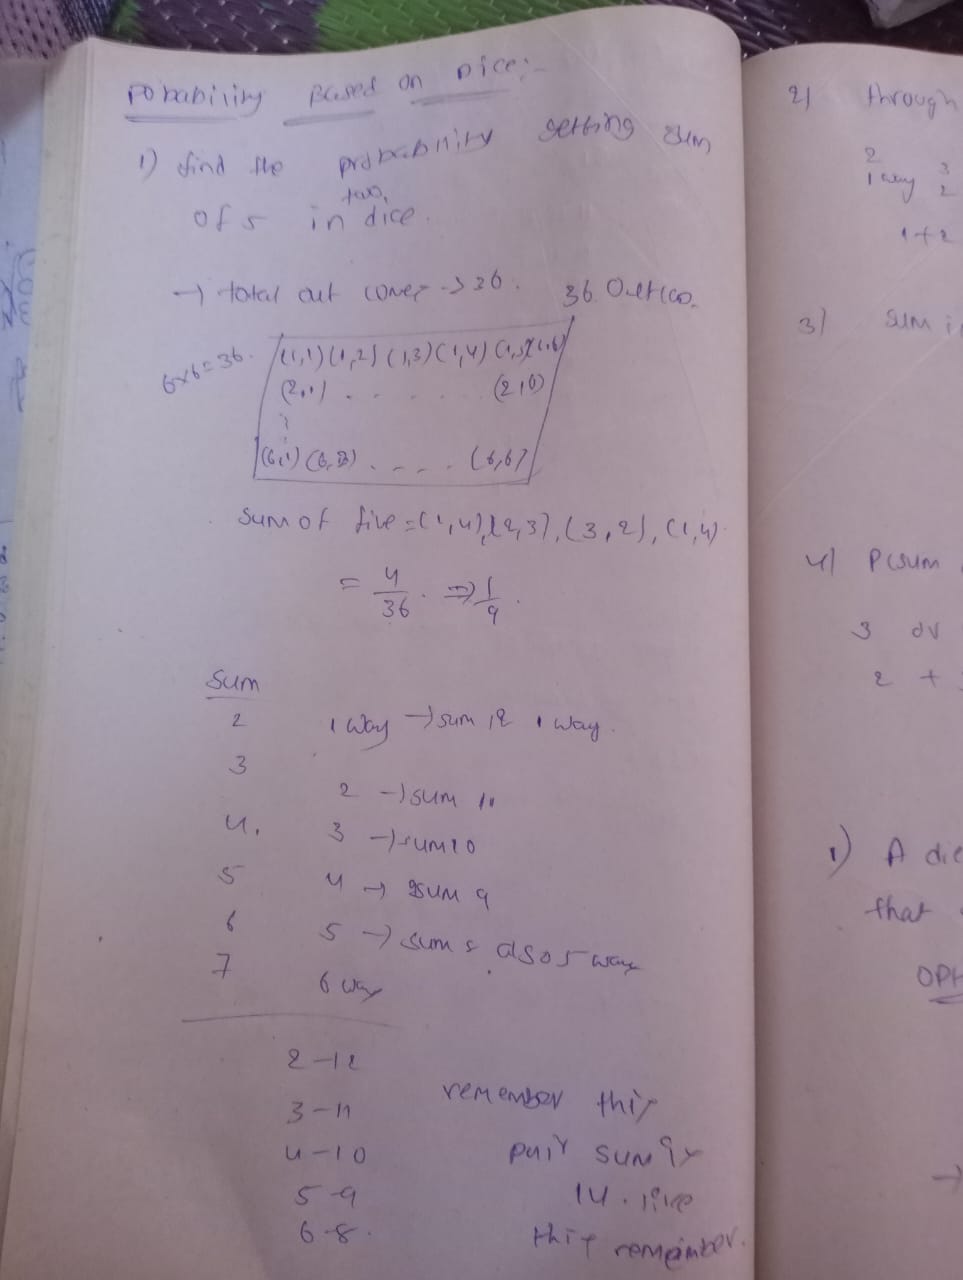 Pobability Based on Dice:-
1) find the probability getting sum
of 5 in two dice.
→ total out comes → 36. 36 Outco.
6x6=36.
(1,1) (1,2) (1,3) (1,4) (1,5) (1,6)
(2,1) . . . . . . (2,6)
(6,1) (6,2) . - - . . (6,6)
Sum of five = (1,4), (2,3), (3,2), (1,4)
= 4/36 . ⇒ 1/9 .
Sum
2 1 way → sum 12 1 way.
3 2 → sum 11
4. 3 → sum 10
5 4 → sum 9
6 5 → sum 8 also 5 ways
7 6 way
2-12
3-11
4-10
5-9
6-8.
remember this
pair sum is
14. like
this remember.
2) through
2 3
1 way 2
1+2
3) sum i
4) P(sum
3 or
2 +
1) A die
that